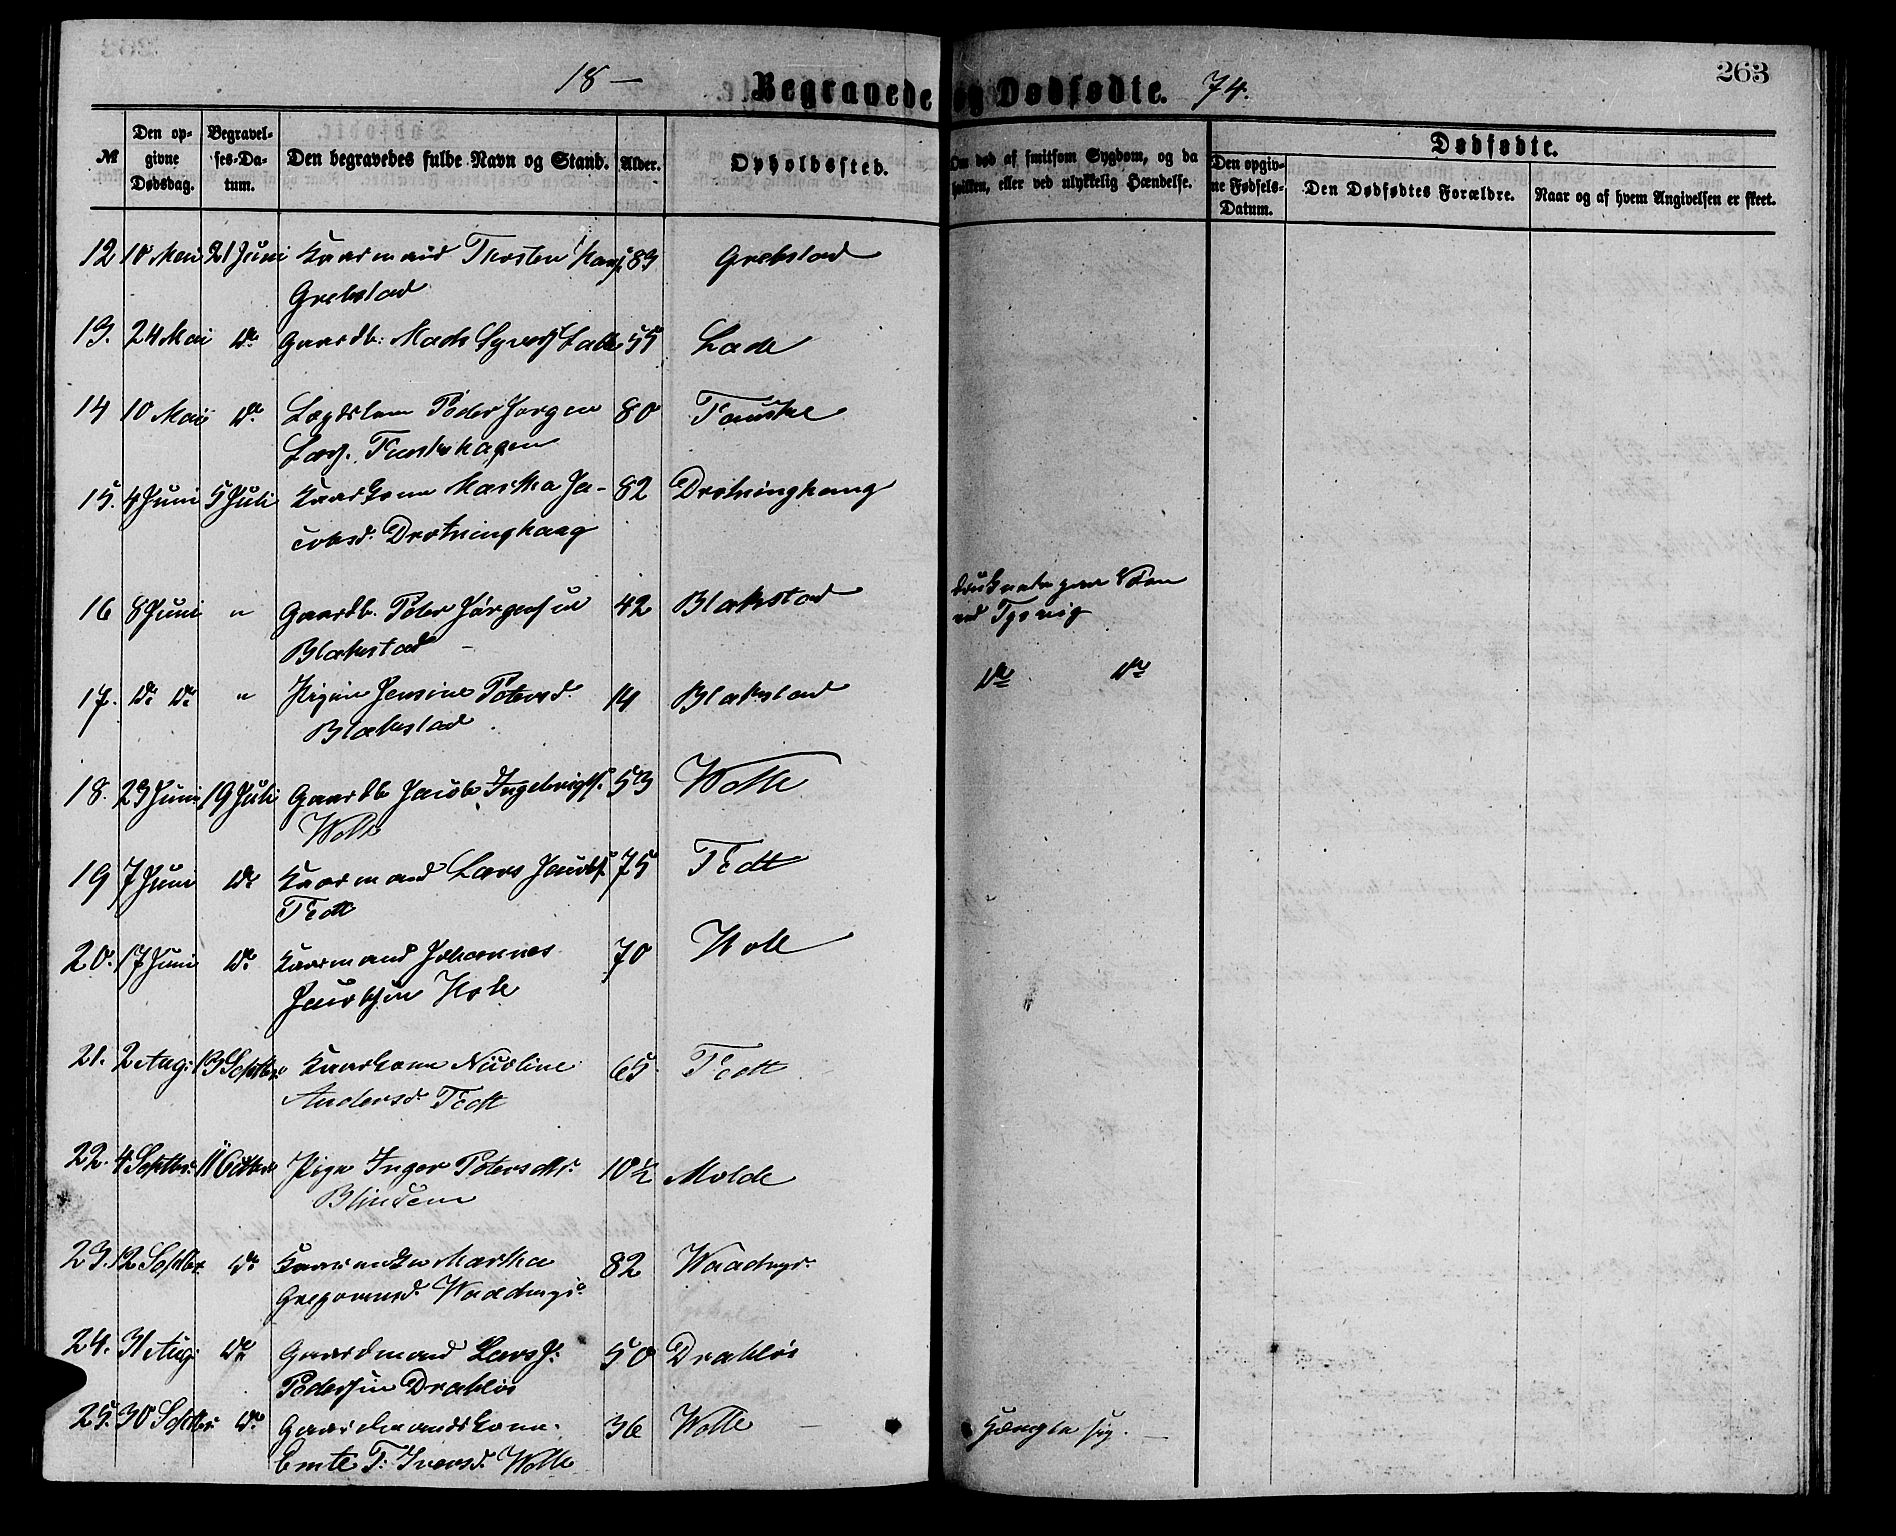 263
18— Begravede og Dødfødte. 74.
№ Den opgivne Dødsdag. Begravelses-Datum. Den begravedes fulde Navn og Stand. Alder. Opholdssted. Om død af smitsom Sygdom, og da hvilken, eller ved ulykkelig Hændelse. Dødfødte.
Den opgivne Fødsels-Datum. Den Dødfødtes Forældre. Naar og af hvem Angivelsen er skeet.
12 10 Mai 21 Juni Kaarmand Thosten 83 Grebstad
Grebstad
13. 24 Mai do Gaardb: Mads Syvers 55 Lade
14 10 Mai do Lægdslem Peder Jørgen 80 Fauske
Fauskehagen
15. 4 Juni 5 Juli Kaarkone Martha Ja- 82 Drotninghaug
cobsd. Drotninghaug
16 8 Juni " Gaardb. Peter Jørgensen 42 Blakstad
Blakstad
ved Tysvig
17. do do " Pigen Jensine Petersd. 14 Blakstad do do
Blakstad
18. 23 Juni 19 Juli Gaardb Jacob Ingebrigts. 53 Wolle
Wolle
19 7 Juni do Kaarmand Lars Jacobs. 75 Tedt
Tedt
20. 17 Juni do Kaarmand Johannes 70 Hole
Jacobsen Hole
21. 2 Aug: 13 Septbr. Kaarkone Nicoline 65 Tedt
Andersd. Tedt
22. 4 Septbr. 11 Octbr. Pige Inger Petersdtr. 10½ Molde
Blindem
23. 12 Septbr. do Martha 82
Gregoriusd.
24. 31 Aug: do Gaardmand Lars J. 50 Drabløs
Pedersen Drabløs
25. 30 Septbr. do Gaardmandskone 36 Wolle Hængte sig. —
Emte T. Iversd. Wolle